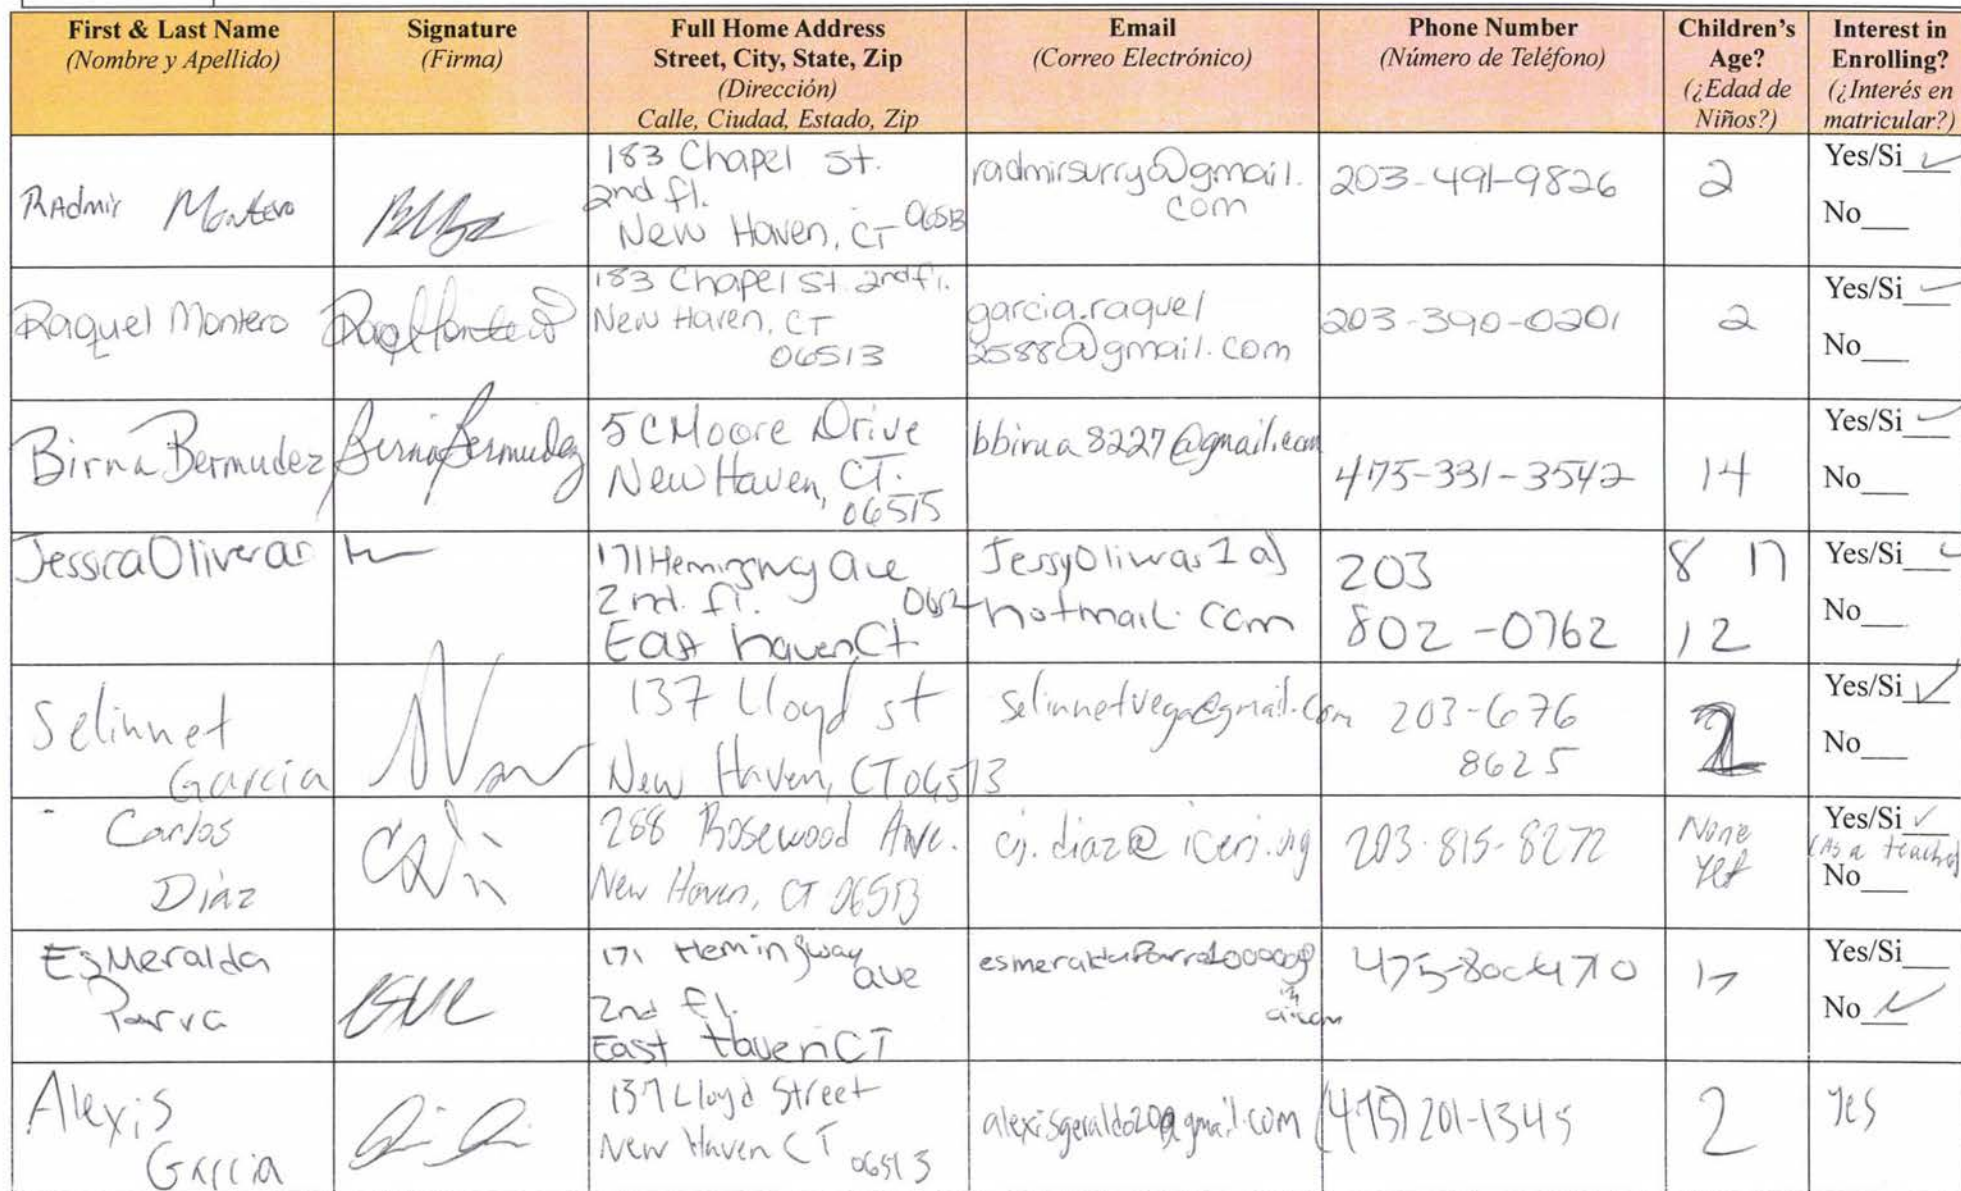 First & Last Name
(Nombre y Apellido)
Signature
(Firma)
Full Home Address
Street, City, State, Zip
(Dirección)
Calle, Ciudad, Estado, Zip
Email
(Correo Electrónico)
Phone Number
(Número de Teléfono)
Children's
Age?
(¿Edad de
Niños?)
Interest in
Enrolling?
(¿Interés en
matricular?)
RAdmir Montero
183 Chapel St.
2nd fl.
New Haven, CT 06513
radmirsurry@gmail.
com
203-491-9826
2
Yes/Si
No
Raquel Montero
Raquel Montero
183 Chapel St 2nd fl.
New Haven, CT
06513
garcia.raquel
2588@gmail.com
203-390-0201
2
Yes/Si
No
Birna Bermudez
Birna Bermudez
5 C Moore Drive
New Haven, CT.
06515
bbirna8227@gmail.com
475-331-3542
14
Yes/Si
No
Jessica Oliveras
171 Hemingway ave
2nd. fl.
East haven Ct
hotmail.com
203
802-0762
8 17
12
Yes/Si
No
Selinnet
Garcia
137 Lloyd st
New Haven, CT 06513
selinnetvega@gmail.com
203-676
8625
2
Yes/Si
No
Carlos
Díaz
288 Rosewood Ave.
New Haven, CT 06513
cj.diaz@
203-815-8272
None
yet
Yes/Si
(As a teacher)
No
EsMeralda
Parra
171 Hemingway
ave
2nd fl.
East Haven CT
17
Yes/Si
No
Alexis
Garcia
137 Lloyd Street
New Haven CT 06513
alexisgeraldo20@gmail.com
(475) 201-1345
2
yes